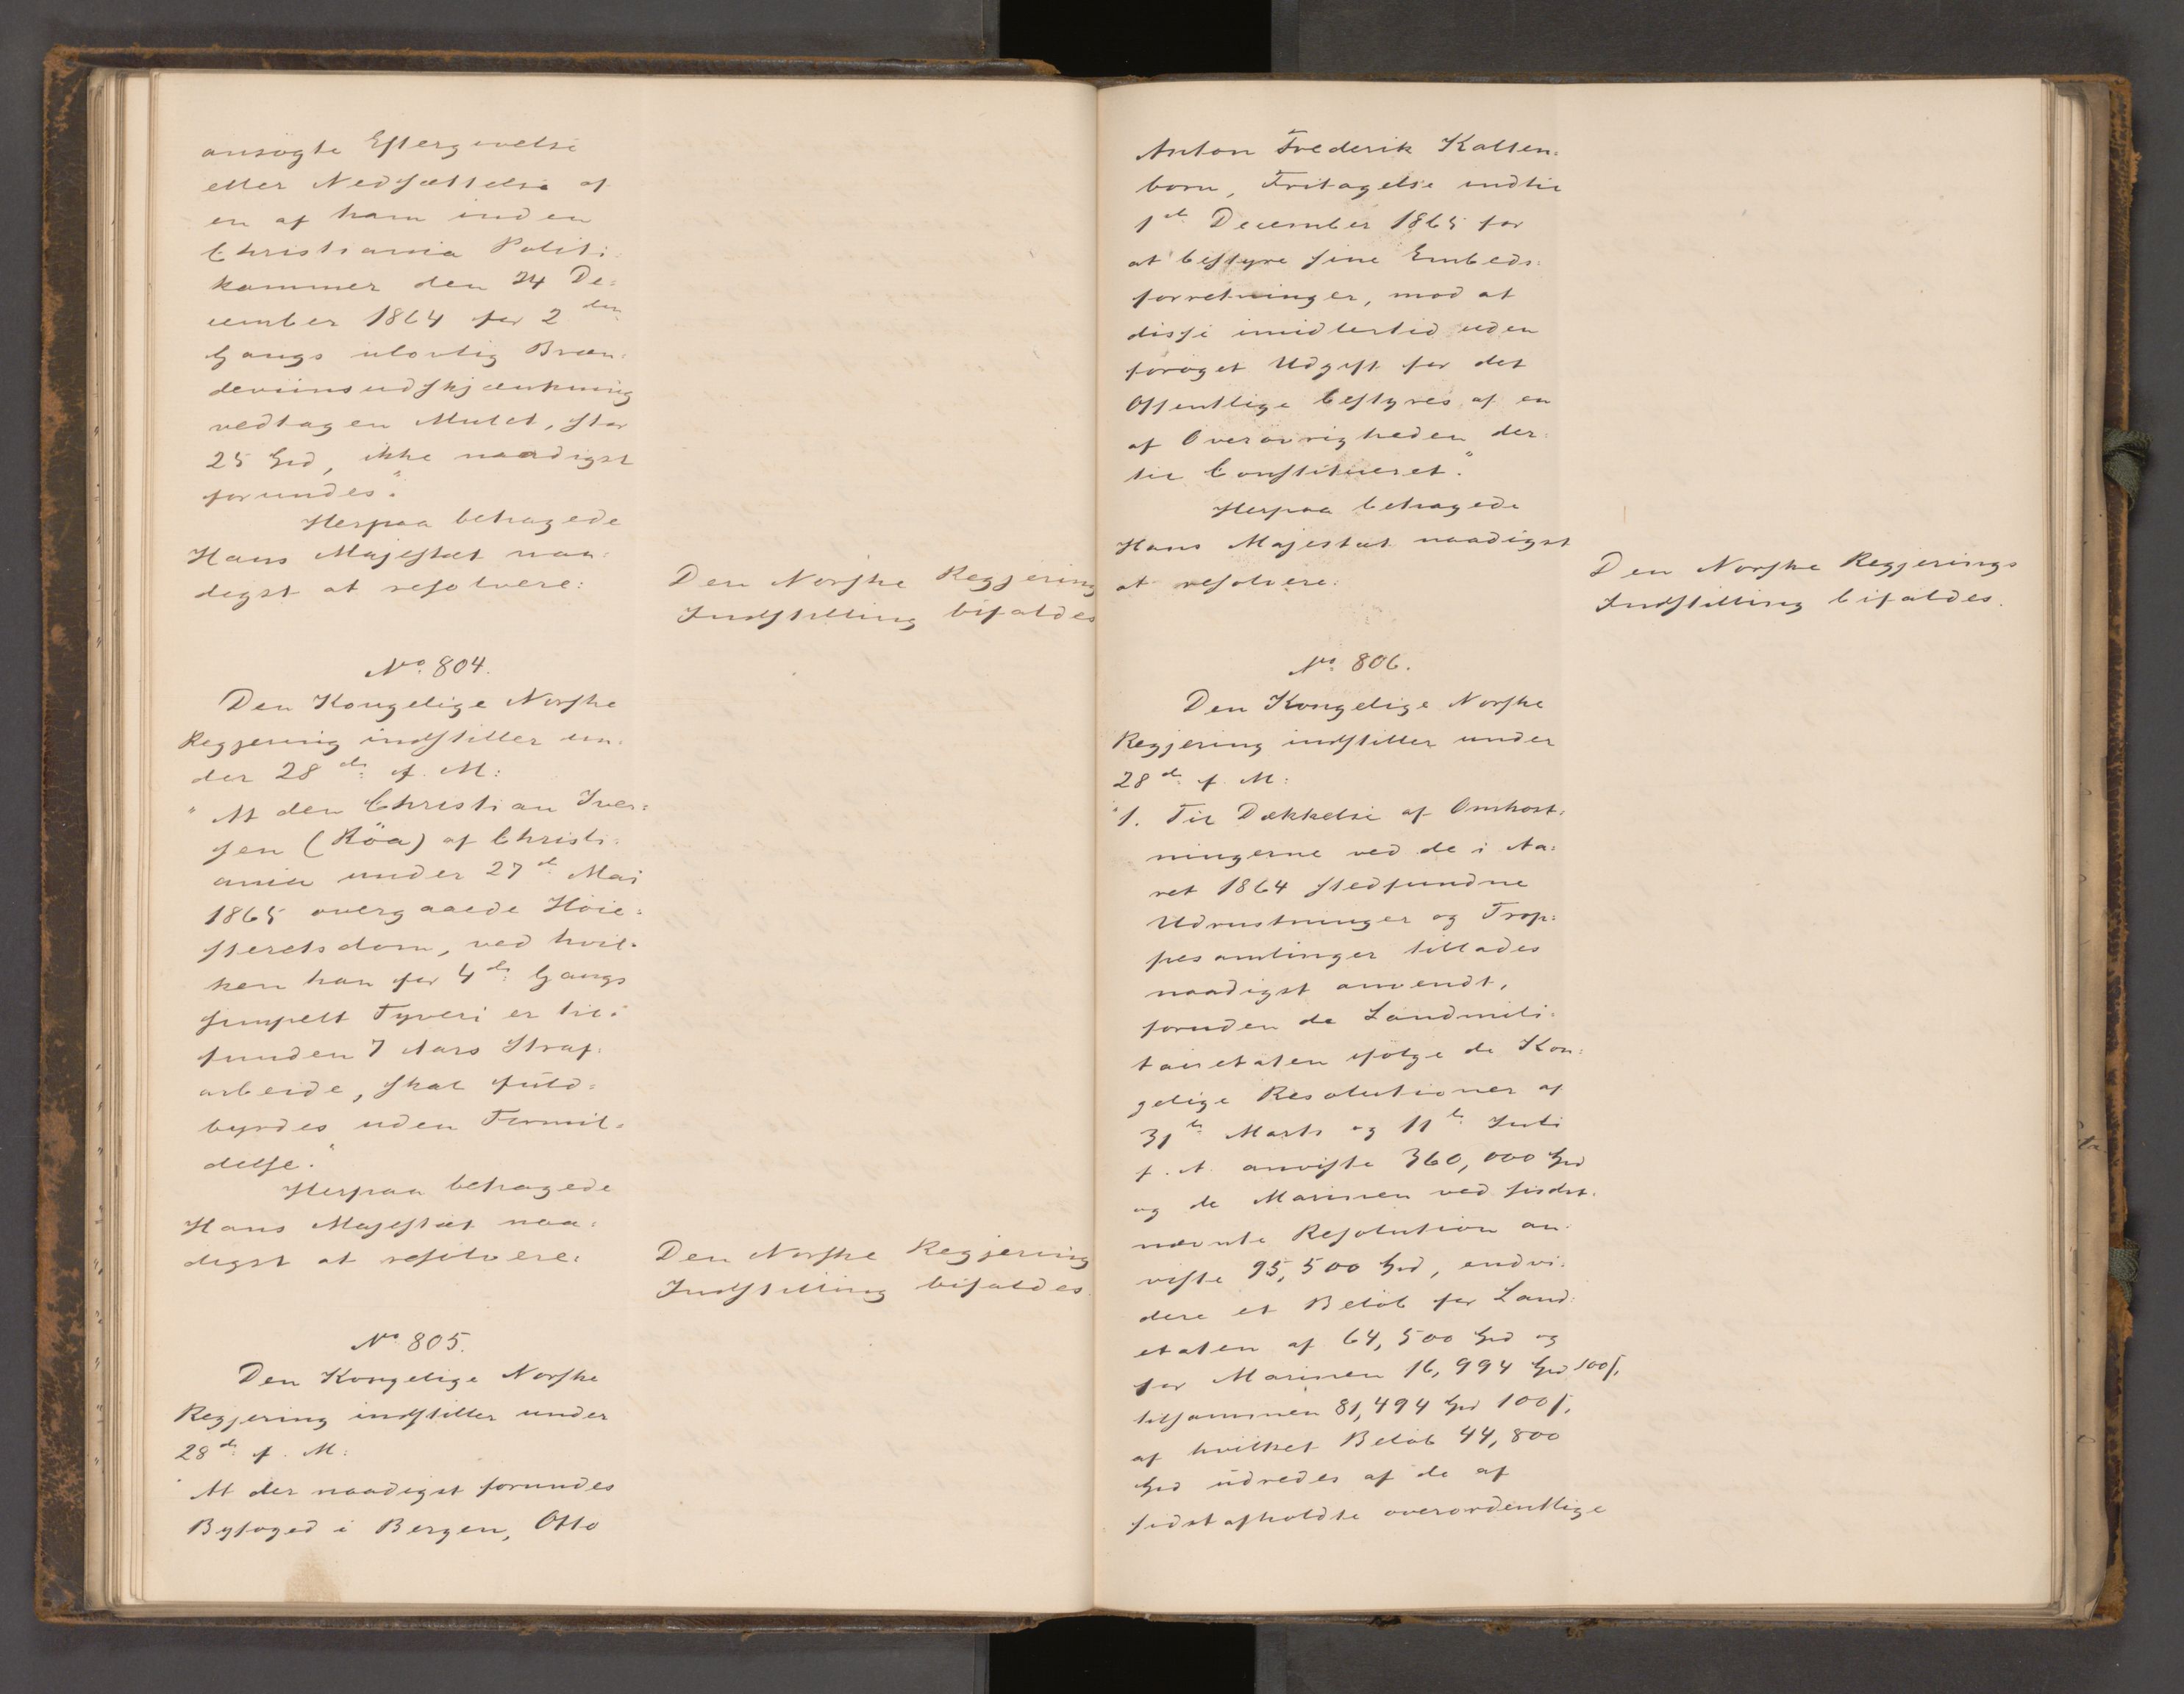 ansøgte Eftergivelse
eller Nedsættelse af
en af ham inden
Christiania Politi:
kammer den 24 De:
cember 1864 for 2den
Gangs ulovlig Bræn:
deviinsudskjænkning
vedtagen Mulct, stor
25 Spd, ikke naadigst
forundes."
Herpaa behagede
Hans Majestæt naa:
digst at resolvere:
Den Norske Regjering
Indstilling bifaldes
No. 804.
Den Kongelige Norske
Regjering indstiller un:
der 28de f. M:
"At den Christian Iver:
sen (Röa) af Christi:
ania under 27de Mai
1865 overgaaede Höie:
steretsdom, ved hvil:
ken han for 4de Gangs
simpelt Tyveri er til:
funden 7 Aars Straf:
arbeide, skal fuld:
byrdes uden Formil:
delse."
Herpaa behagede
Hans Majestæt naa:
digst at resolvere:
Den Norske Regjering
Indstilling bifaldes.
No. 805.
Den Kongelige Norske
Regjering indstiller under
28de f. M:
"At der naadigst forundes
Byfoged i Bergen, Otto
Anton Frederik Kalten:
born, Fritagelse indtil
1ste December 1865 for
at bestyre sine Embeds:
forretninger, mod at
disse imidlertid uden
foröget Udgift for det
Offentlige bestyres af en
af Overøvrigheden der:
til Constitueret."
Herpaa behagede
Hans Majestæt naadigst
at resolvere:
Den Norske Regjerings
Indstilling bifaldes.
No. 806.
Den Kongelige Norske
Regjering indstiller under
28de f. M:
"1. Til Dækkelse af Omkost:
ningerne ved de i Aa:
ret 1864 stedfundne
Udrustninger og Trop:
pesamlinger tillades
naadigst anvendt,
foruden de Landmili:
tairetaten ifölge de Kon:
gelige Resolutioner af
31te Marts og 11te Juli
f. A. anviste 360,000 Spd
og de Marinen ved sidst:
nævnte Resolution an:
viste 95,500 Spd, endvi:
dere et Belöb for Land:
etaten af 64,500 Spd og
for Marinen 16,994 Spd 100 s,
tilsammen 81,494 Spd 100 s,
af hvilket Belöb 44,800
Spd udredes af de af
sidst afholdte overordentlige